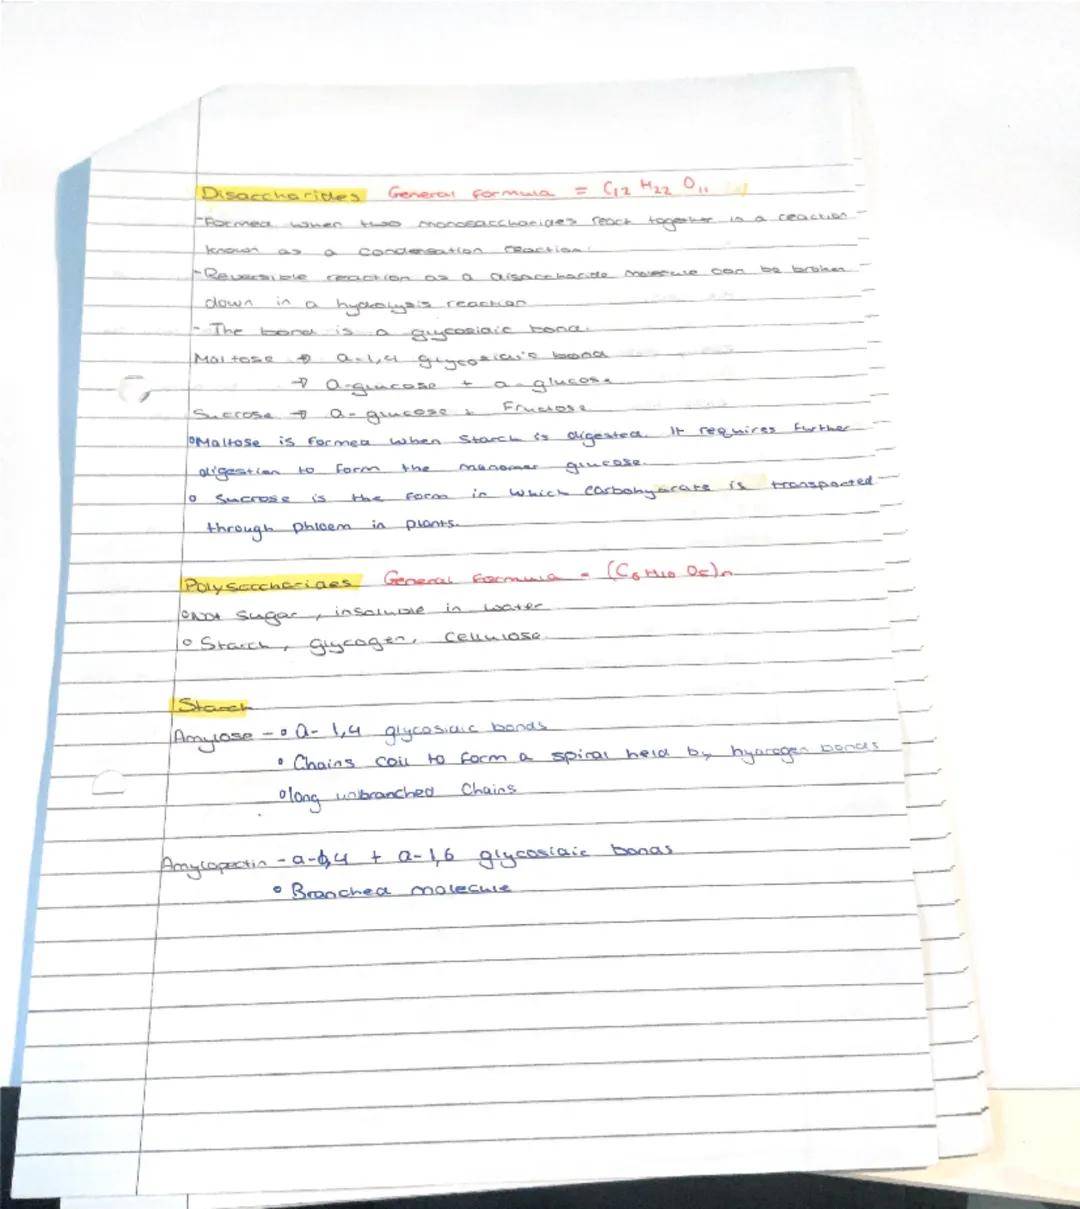 Disaccharides General formula = C12 H22 O11
-Formed when two monosaccharides react together in a reaction
known as a condensation reaction.
-Reversible reaction as a disaccharide molecule can be broken
down in a hydrolysis reaction
- The bond is a glycosidic bond.
Maltose → a-1,4 glycosidic bond
→ a-glucose + a-glucose
Sucrose → a-glucose + Fructose
Maltose is formed when Starch is digested. It requires further
digestion to form the monomer glucose.
Sucrose is the form in which carbohydrate is transported
through phloem in plants.
Polysaccharides General Formula - (C6 H10 O5)n
Not sugar, insoluble in water
Starch, glycogen, cellulose
Starch
Amylose - a-1,4 glycosidic bonds
Chains coil to form a spiral held by hydrogen bonds
long unbranched Chains
Amylopectin - a-1,4 + a-1,6 glycosidic bonds
Branched molecule